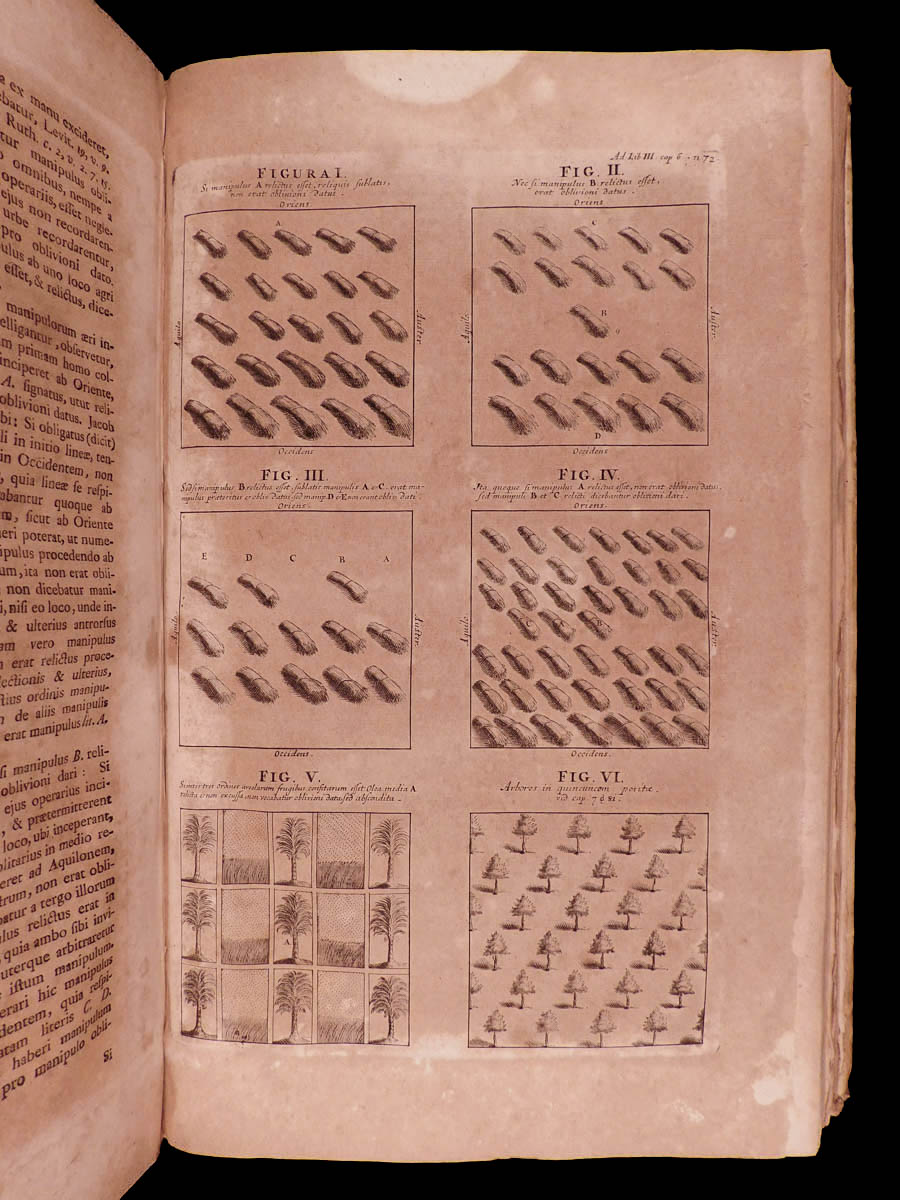 ex manu excideret,
ebatur, Levit. 19, v. 9.
Ruth. c. 2, v. 2. 7. 15.
tur manipulus obli-
o omnibus, nempe a
operariis, esset negle-
ejus non recordaren-
urbe recordarentur,
pro oblivioni dato.
pulus ab uno loco agri
esset, & relictus, dice-
manipulorum æri in-
elligantur, observetur,
m primam homo col-
inciperet ab Oriente,
A. signatus, utut reli-
oblivioni datus. Jacob
bi: Si obligatus (dicit)
li in initio lineæ, ten-
in Occidentem, non
, quia lineæ se respi-
abantur quoque ab
m, sicut ab Oriente
neri poterat, ut nume-
ipulus procedendo ab
um, ita non erat obli-
non dicebatur mani-
i, nisi eo loco, unde in-
& ulterius antrorsus
am vero manipulus
n erat relictus proce-
lectionis & ulterius,
ctius ordinis manipu-
m de aliis manipulis
erat manipulus lit. A.
si manipulus B. reli-
oblivioni dari: Si
ejus operarius inci-
, & prætermitterent
loco, ubi inceperant,
blitarius in medio re-
eret ad Aquilonem,
trum, non erat obli-
batur a tergo illorum
ulus relictus erat in
, quia ambo sibi invi-
uterque arbitraretur
istum manipulum.
erari hic manipulus
identem, quia respi-
atam literis C. D.
haberi manipulum
pro manipulo obli-
Si
Ad Lib III. cap 6
72
FIGURA I.
Si manipulus A relictus esset, reliquis sublatis,
non erat oblivioni datus.
Oriens
A
Aquilo
Auster
Occidens
FIG. II.
Nec si manipulus B. relictus esset,
erat oblivioni datus.
Oriens
C
B
9
D
Aquilo
Auster
Occidens
FIG. III
Sed si manipulus B relictus esset, sublatis manipulis A & C. erat ma-
nipulus præteritus & obliv. datus sed manip. D & E non erant obliv. dati.
Oriens
E D C B A
Aquilo
Auster
Occidens.
FIG. IV.
Ita quoque si manipulus A relictus esset, non erat oblivioni datus,
sed manipuli B et C relicti dicebantur oblivioni dari.
Oriens
C B
Aquilo
Auster
Occidens.
FIG. V.
Si inter tres ordines areolarum frugibus consitarum esset Olea media A
relicta & non excussa, non vocabatur oblivioni data, sed abscondita.
A
FIG. VI.
Arbores in quincuncem positæ.
vid cap. 7 §. 81.